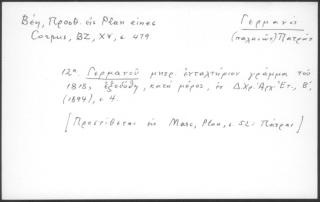 Βέη, Προσθ. εις Plan eines
Corpus, BZ, XV, σ. 479.
Γερμανού
(παλαιών) Πατρών
12α. Γερμανού μητρ ενταλτήριον γράμμα του
1818, εξεδόθη, κατά μέρος, εν Δ.Χρ.Αρχ.Ετ., Β',
(1894), σ. 4.
[Προστίθεται εις Marc, Plan, σ. 52: Πάτραι]